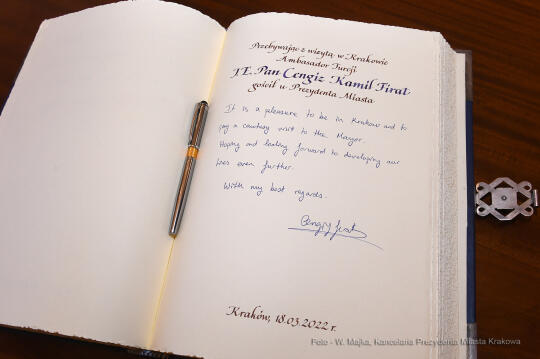 Przebywając z wizytą w Krakowie
Ambasador Turcji
J.E. Pan Cengiz Kamil Firat
gościł u Prezydenta Miasta
It is a pleasure to be in Krakow and to
pay a courtesy visit to the Mayor.
Hoping and looking forward to developing our
ties even further.
With my best regards.
Cengiz Firat
Kraków, 18.03.2022 r.
Foto - W. Majka, Kancelaria Prezydenta Miasta Krakowa